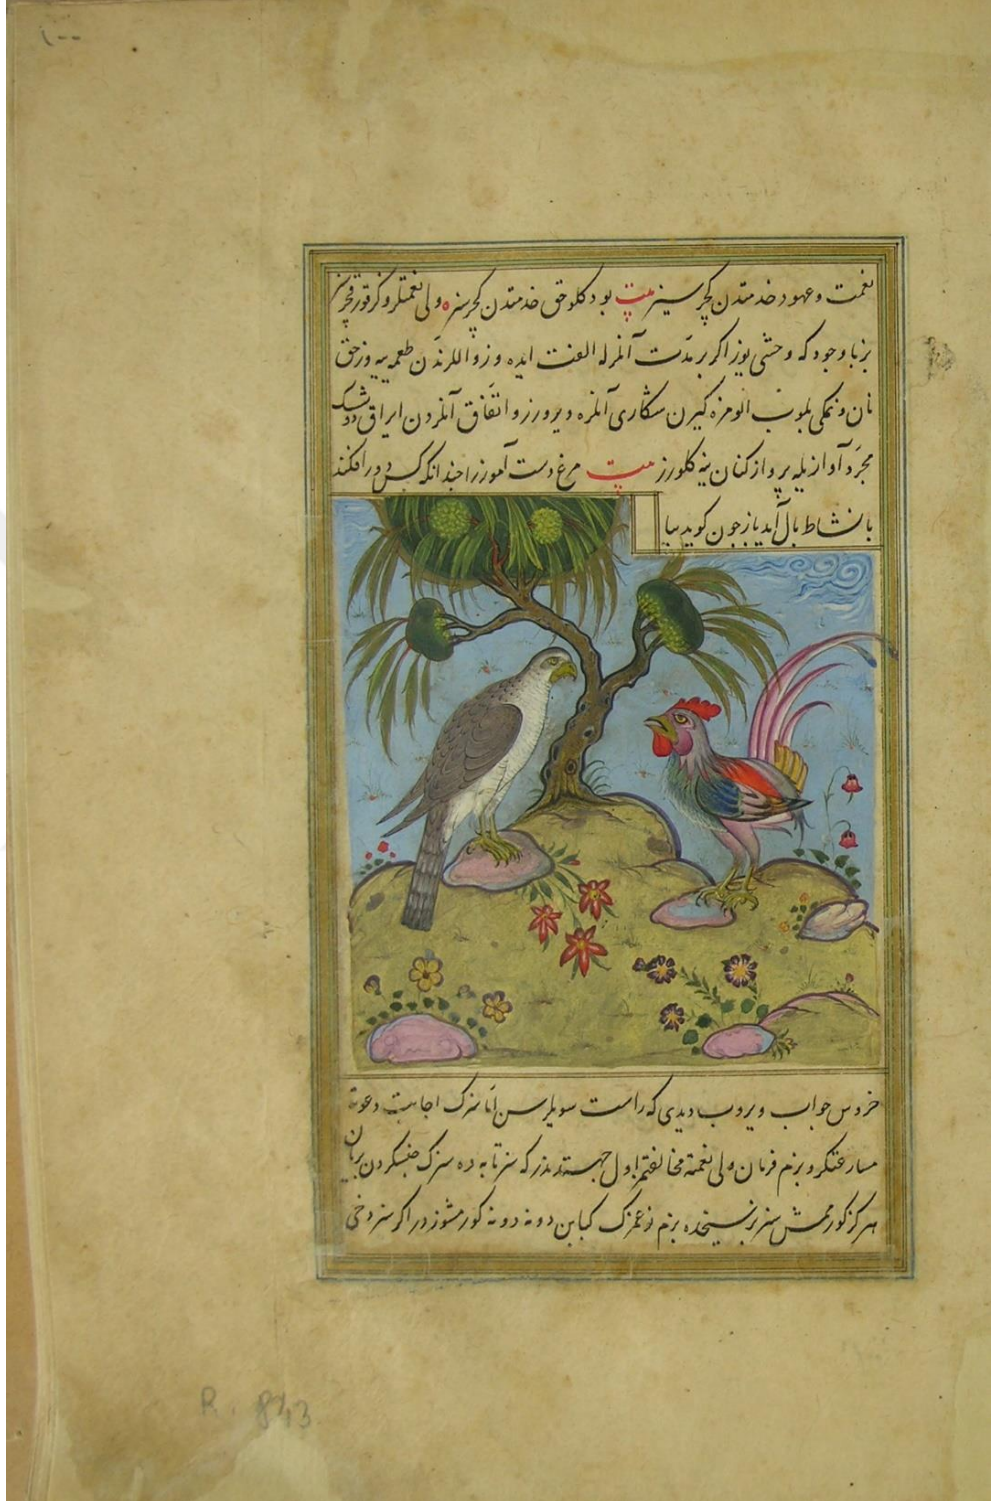 ١٠٠
نعمت و عهود خدمتدن کچر سیز بیت بو دکلو حق خدمتدن کچر سز ولی نعمتلرو کر قور قچر سز
بز با وجود که وحشی یوز اکر بر مدت آنلرله الفت ایده وز و اللرندن طعمه ییه وز حق
نان و نمکی بلوب الومزه کیرن شکاری آنلره ویرورز و اتفاق آنلردن ایراق دوشسک
مجرد آواز یله پرواز کنان ینه کلورز بیت مرغ دست آموز را چندانکه کس دور افکند
با نشاط بال آید باز چون کوید بیا
خروس جواب ویروب دیدی که راست سویلرسن اما سزک اجابت دعوته
مسارعتکز و بزم فرمان ولی نعمته مخالفتمز اول جهتدندر که سز تابه ده سزک جنسکزدن بریان
هرکز کورممش سز بز سیخده بزم نوعمزک کبابن دونه دونه کورمشوزدر اکر سز دخی
R. 843